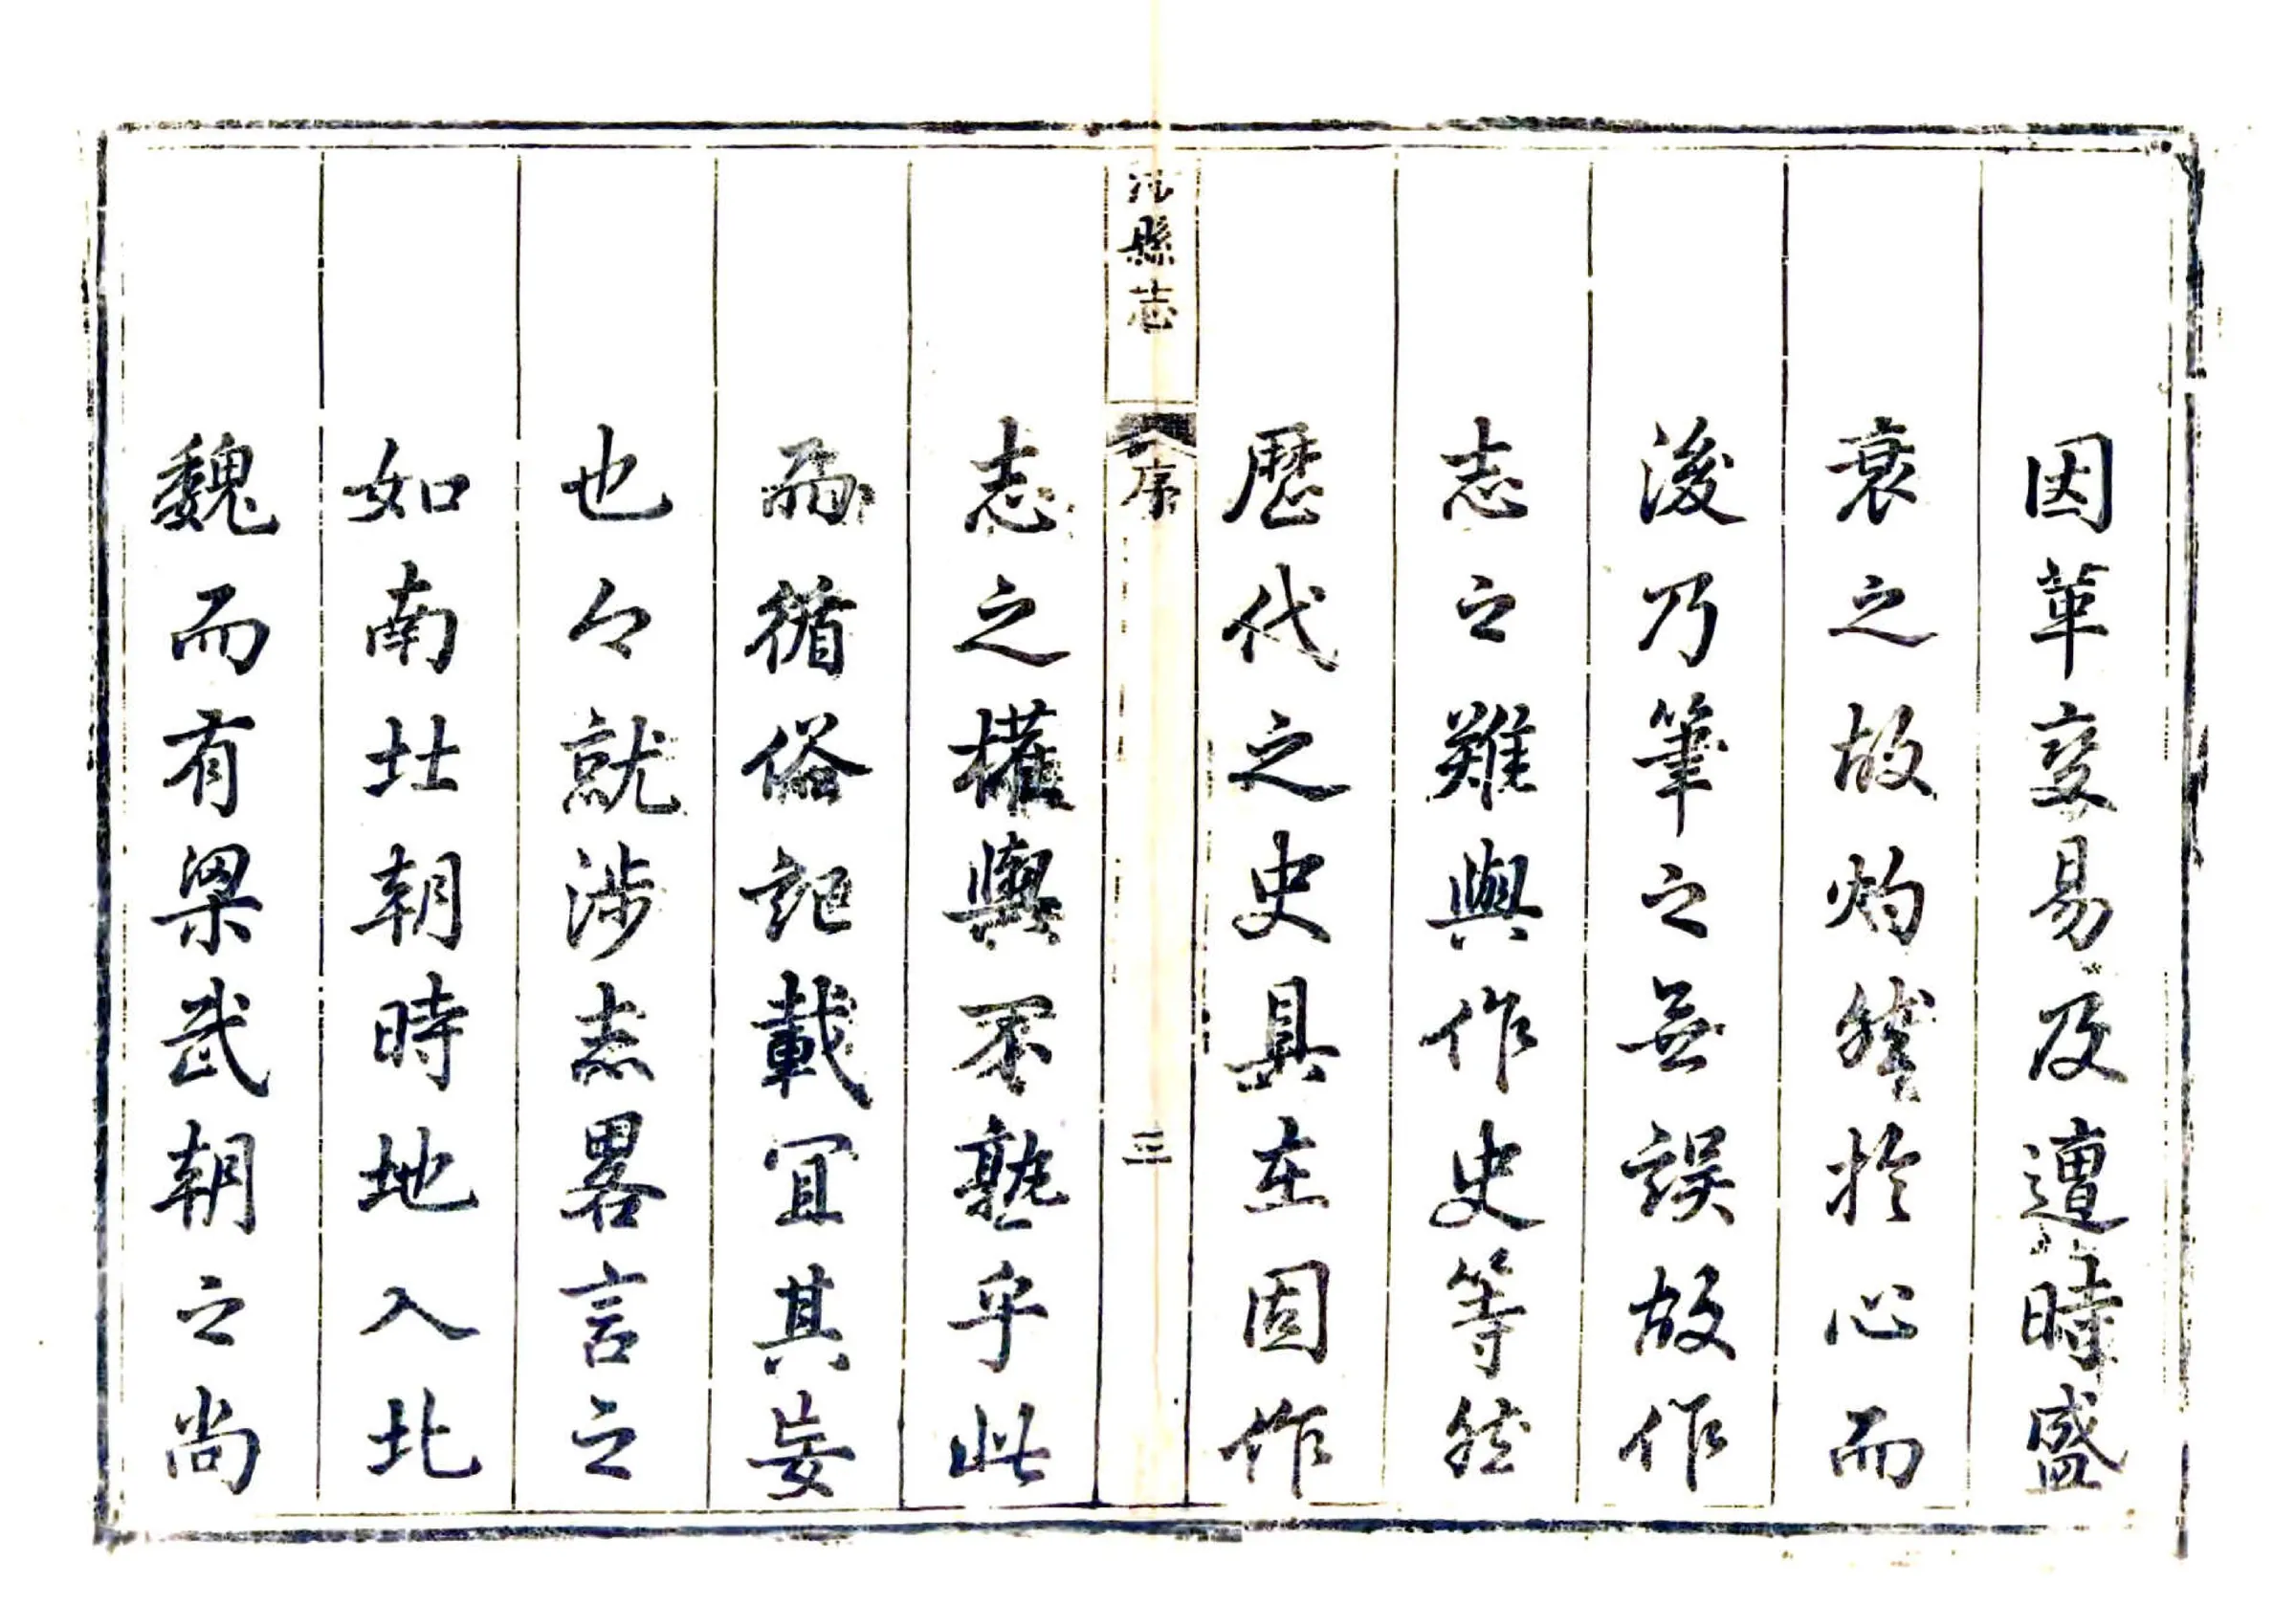 因革变易及遭時盛
衰之故灼然於心而
後乃筆之無誤故作
志之難與作史等然
歷代之史具在固作
縣志
序
三
志之權輿不熟乎此
而循俗記載宜其妄
也々就涉志畧言之
如南北朝時地入北
魏而有梁武朝之尚